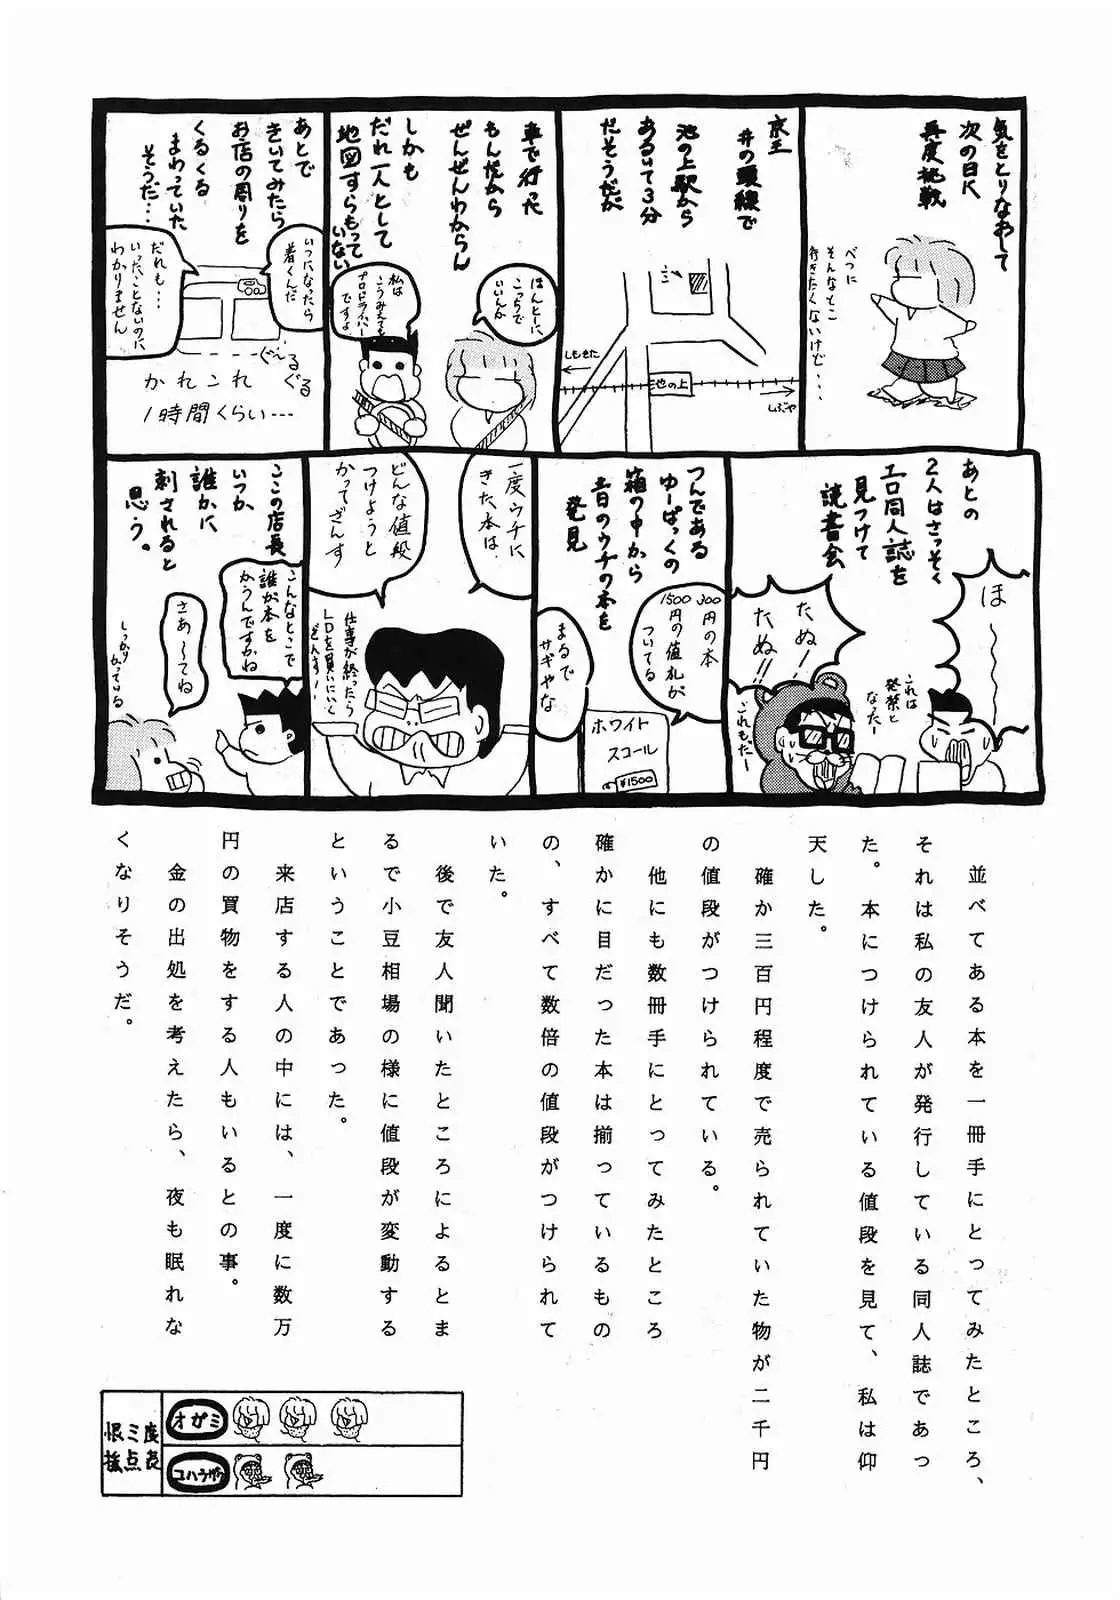 気をとりなおして
次の日に
再度挑戦
べつに
そんなとこ
行きたくないけど・・・
京王
井の頭線で
池の上駅から
あるいて3分
だそうだが
しもきた
池の上
しぶや
車で行った
もんだから
ぜんぜんわからん
しかも
だれ一人として
地図すらもって
いない
ほんとーに
こっちで
いいんか
私は
こうみえても
プロドライバー
ですよ
あとで
きいてみたら
お店の周りを
くるくる
まわっていた
そうだ・・・
いつになったら
着くんだ
だれも・・・
いったことないのに
わかりません
ぐ〜るぐる
かれこれ
1時間くらい・・・
あとの
2人はさっそく
エロ同人誌を
見つけて
読書会
ほ〜〜
たぬー
たぬ!!
これは
発禁と
なったー
これもだー
つんである
ゆーぱっくの
箱の中から
昔のウチの本を
発見
300円の本
1500円の値札が
ついてる
まるで
サギやな
ホワイト
スコール
¥1500
一度ウチに
きた本は、
どんな値段
つけようと
かってざんす
仕事が終ったら
LDを買いにいく
ざんす!
ここの店長
いつか
誰かに
刺されると
思う。
こんなとこで
誰が本を
かうんですかね
さあ〜てね
しっかり
かっている
　並べてある本を一冊手にとってみたところ、
それは私の友人が発行している同人誌であっ
た。本につけられている値段を見て、私は仰
天した。
　確か三百円程度で売られていた物が二千円
の値段がつけられている。
　他にも数冊手にとってみたところ
確かに目だった本は揃っているもの
の、すべて数倍の値段がつけられて
いた。
　後で友人聞いたところによるとま
るで小豆相場の様に値段が変動する
ということであった。
　来店する人の中には、一度に数万
円の買物をする人もいるとの事。
　金の出処を考えたら、夜も眠れな
くなりそうだ。
オガミ